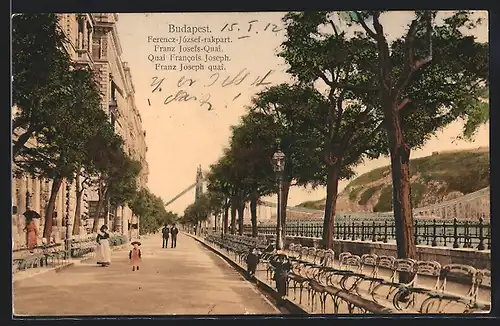 Budapest. 15. V. 12
Ferencz-József-rakpart.
Franz Josefs-Quai.
Quai François Joseph.
Franz Joseph quai.